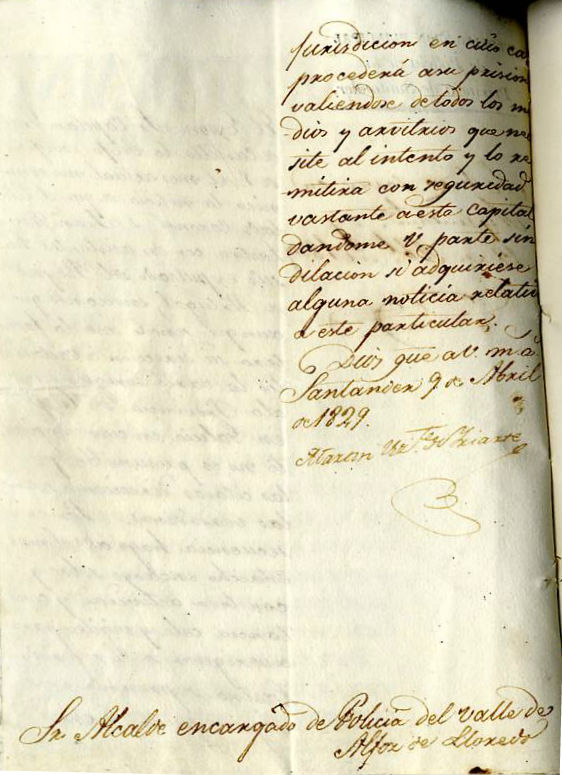 Jurisdicion en cuio ca
procederá a su prision
valiendose de todos los me
dios y arvitrios que nece
site al intento y lo re
mitira con seguridad
vastante a esta Capital
dandome V. parte sin
dilacion si adquiriese
alguna noticia relativa
a este particular.
Dios gue a V. m. a.
Santander 9 de Abril
de 1829.
de Yriarte
Sr. Alcalde encargado de Policia del Valle de
Alfoz de Lloredo